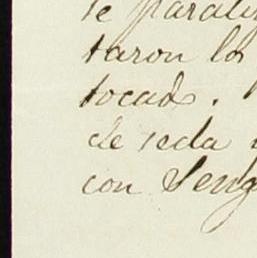 te parali
taron los
tocad.
de seda
con Leng